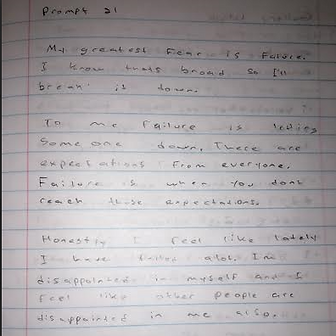 Prompt 21
My greatest Fear is Failure.
I know thats broad so I'll
break it down.
To me Failure is letting
Someone down. There are
expectations From everyone.
Failure is when you dont
reach those expectations.
Honestly I Feel like lately
I have failed alot. Im
disappointed in myself and I
Feel like other people are
disappointed in me also.